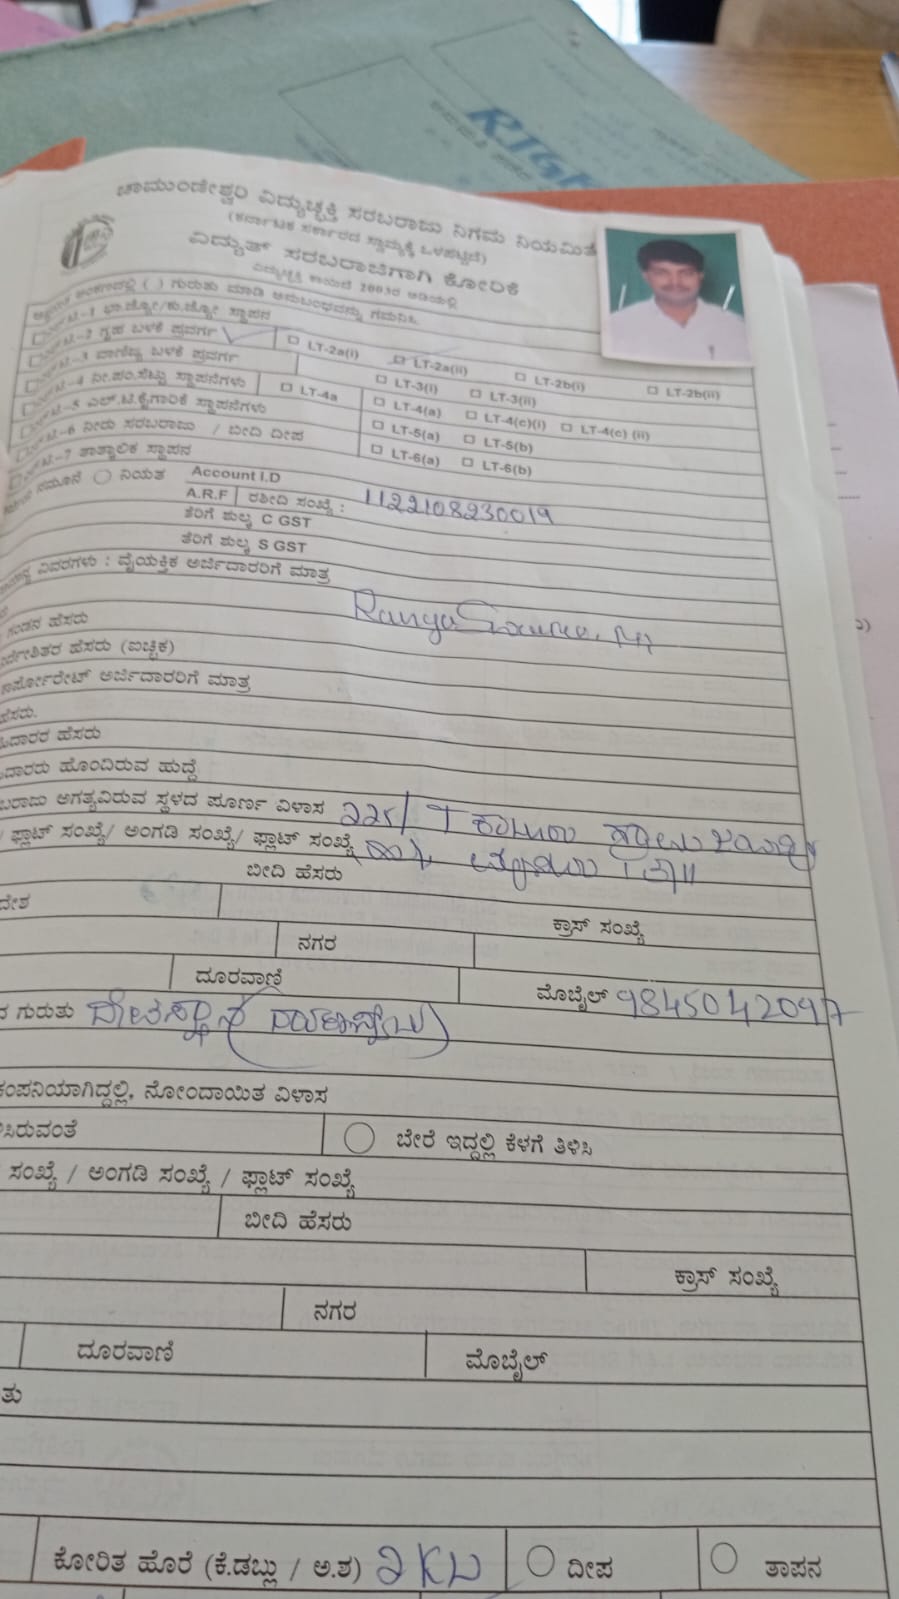 RIGH
ಚಾಮುಂಡೇಶ್ವರಿ ವಿದ್ಯುಚ್ಛಕ್ತಿ ಸರಬರಾಜು ನಿಗಮ ನಿಯಮಿತ
(ಕರ್ನಾಟಕ ಸರ್ಕಾರದ ಸ್ವಾಮ್ಯಕ್ಕೆ ಒಳಪಟ್ಟಿದೆ)
ವಿದ್ಯುತ್ ಸರಬರಾಜಿಗಾಗಿ ಕೋರಿಕೆ
ವಿದ್ಯುಚ್ಛಕ್ತಿ ಕಾಯಿದೆ 2003ರ ಅಡಿಯಲ್ಲಿ
( ) ಗುರುತು ಮಾಡಿ ಅನುಬಂಧವನ್ನು ಗಮನಿಸಿ
-1 ಭಾ.ಜ್ಯೋ/ಕು.ಜ್ಯೋ ಸ್ಥಾಪನ
-2 ಗೃಹ ಬಳಕೆ ಪ್ರವರ್ಗ LT-2a(i) LT-2a(ii) LT-2b(i) LT-2b(ii)
-3 ವಾಣಿಜ್ಯ ಬಳಕೆ ಪ್ರವರ್ಗ LT-3(i) LT-3(ii)
-4 ನೀ.ಪಂ.ಸೆಟ್ಟು ಸ್ಥಾಪನೆಗಳು LT-4a LT-4(a) LT-4(c)(i) LT-4(c) (ii)
-5 ಎಲ್.ಟಿ.ಕೈಗಾರಿಕೆ ಸ್ಥಾಪನೆಗಳು LT-5(a) LT-5(b)
-6 ನೀರು ಸರಬರಾಜು / ಬೀದಿ ದೀಪ LT-6(a) LT-6(b)
-7 ತಾತ್ಕಾಲಿಕ ಸ್ಥಾಪನ
ನಮೂನೆ ನಿಯತ Account I.D
A.R.F ರಶೀದಿ ಸಂಖ್ಯೆ : 1122108230019
ತೆರಿಗೆ ಶುಲ್ಕ C GST
ತೆರಿಗೆ ಶುಲ್ಕ S GST
ವಿವರಗಳು : ವೈಯಕ್ತಿಕ ಅರ್ಜಿದಾರರಿಗೆ ಮಾತ್ರ
RangaSwamy. M
ಗಂಡನ ಹೆಸರು
ಹೆಸರು (ಐಚ್ಛಿಕ)
ಕಾರ್ಪೋರೇಟ್ ಅರ್ಜಿದಾರರಿಗೆ ಮಾತ್ರ
ಹೆಸರು.
ದಾರರ ಹೆಸರು
ದಾರರು ಹೊಂದಿರುವ ಹುದ್ದೆ
ಬರಾಜು ಅಗತ್ಯವಿರುವ ಸ್ಥಳದ ಪೂರ್ಣ ವಿಳಾಸ 225/
/ ಫ್ಲಾಟ್ ಸಂಖ್ಯೆ/ ಅಂಗಡಿ ಸಂಖ್ಯೆ/ ಫ್ಲಾಟ್ ಸಂಖ್ಯೆ
ಬೀದಿ ಹೆಸರು
ದೇಶ ಕ್ರಾಸ್ ಸಂಖ್ಯೆ
ನಗರ
ದೂರವಾಣಿ ಮೊಬೈಲ್ 9845042097
ಗುರುತು ದೇವಸ್ಥಾನ
ಕಂಪನಿಯಾಗಿದ್ದಲ್ಲಿ, ನೋಂದಾಯಿತ ವಿಳಾಸ
ಸಿರುವಂತೆ ಬೇರೆ ಇದ್ದಲ್ಲಿ ಕೆಳಗೆ ತಿಳಿಸಿ
ಸಂಖ್ಯೆ / ಅಂಗಡಿ ಸಂಖ್ಯೆ / ಫ್ಲಾಟ್ ಸಂಖ್ಯೆ
ಬೀದಿ ಹೆಸರು
ಕ್ರಾಸ್ ಸಂಖ್ಯೆ
ನಗರ
ದೂರವಾಣಿ ಮೊಬೈಲ್
ತು
ಕೋರಿತ ಹೊರೆ (ಕೆ.ಡಬ್ಲ್ಯು / ಅ.ಶ) 2 KW ದೀಪ ತಾಪನ